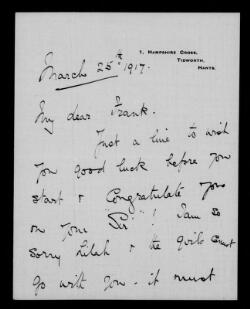 7, Hampshire Cross,
Tidworth,
Hants.
March 25th 1917.
My dear Frank.
Just a line to wish
you good luck before you
start & Congratulate you
on your "Pi"! I am so
sorry Lilah & the girls cannot
go with you - it must